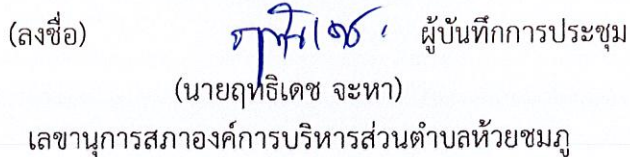 (ลงชื่อ) ฤทธิเดช ผู้บันทึกการประชุม
(นายฤทธิเดช จะหา)
เลขานุการสภาองค์การบริหารส่วนตำบลห้วยชมภู